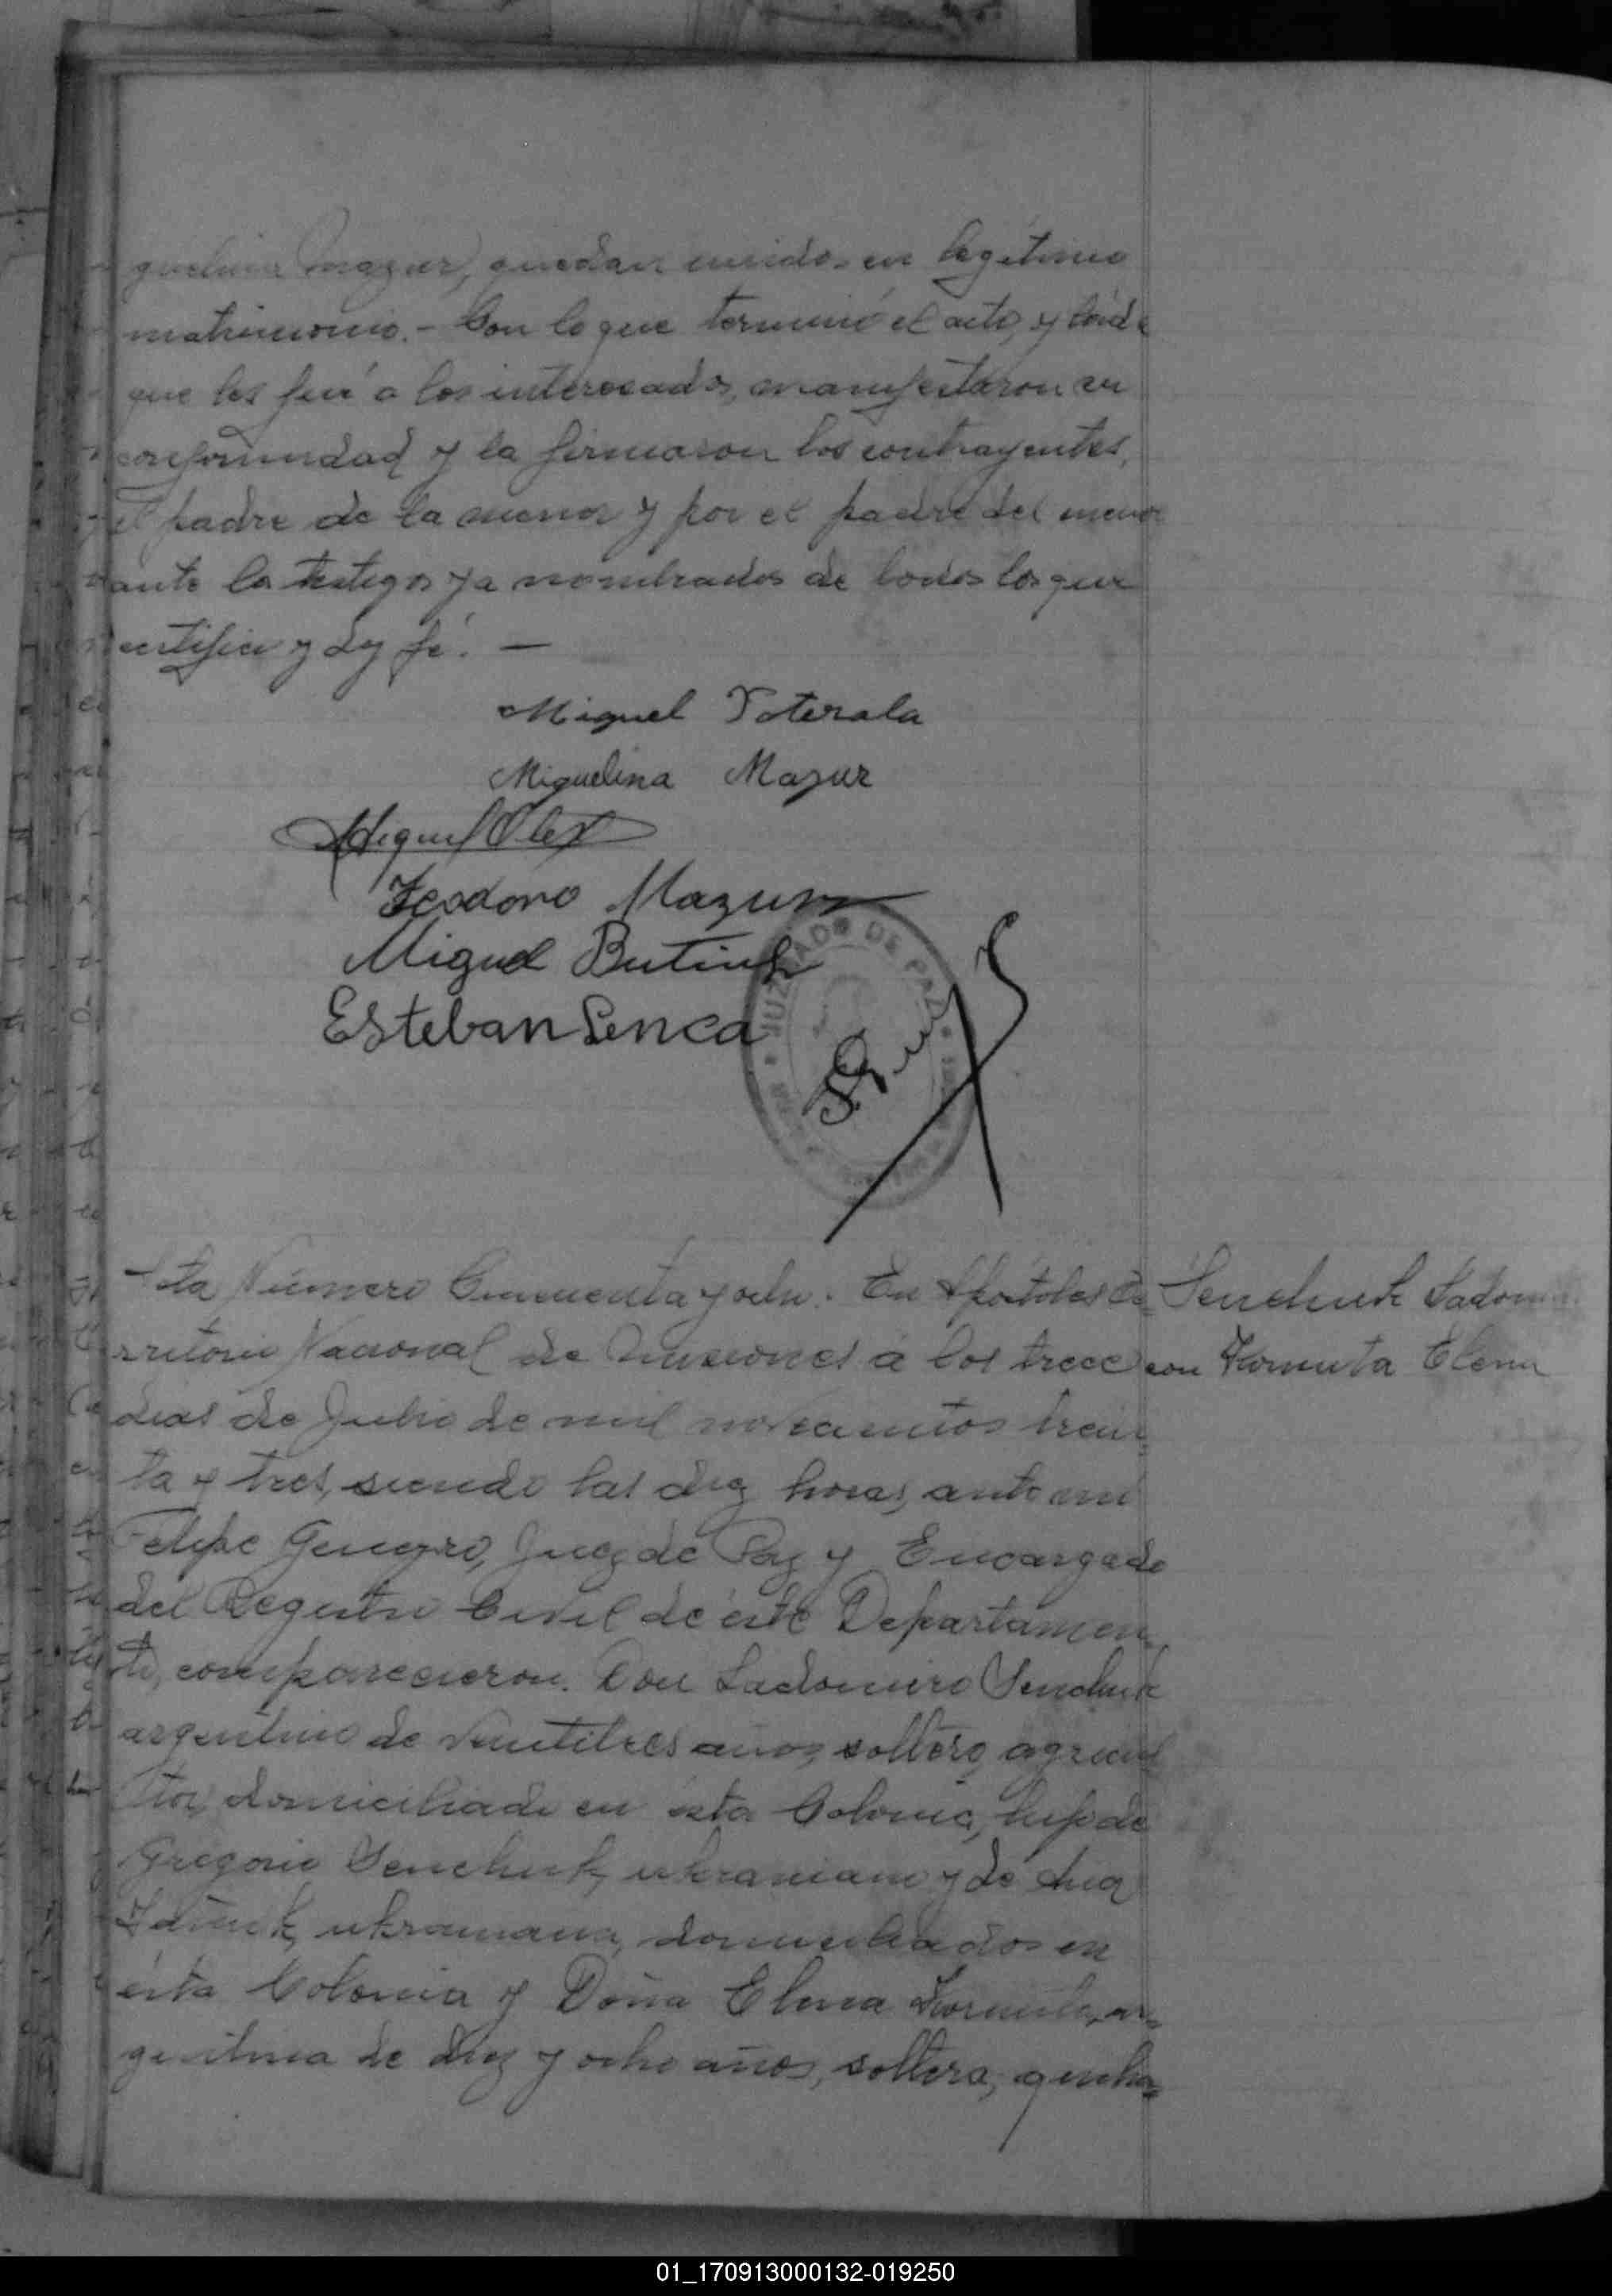 quelina Mazur, quedan unidos en legítimo
matrimonio.- Con lo que terminó el acto, y leida
que les fué a los interesados, manifestaron su
conformidad y la firmaron los contrayentes,
el padre de la menor y por el padre del menor
ante los testigos ya nombrados de todos los que
certifico y doy fé. —
Miguel Poterala
Miguelina Mazur
Miguel
Teodoro Mazur
Miguel
Esteban Senca
JUZGADO DE PAZ
Acta Número Cincuenta y ocho. En Apóstoles Te=
rritorio Nacional de Misiones á los trece
dias de Julio de mil novecientos trein=
ta y tres, siendo las diez horas, ante mi
Felipe Juez de Paz y Encargado
del Registro Civil de éste Departamen=
to, comparecieron. Don Ladomiro Senchuk
argentino de veintitres años, soltero, agricul
tor, domiciliado en ésta Colonia, hijo de
Gregorio Senchuk, ukraniano y de Ana
ukraniana, domiciliados en
ésta Colonia y Doña Elena Kornuta, ar=
gentina de diez y ocho años, soltera,
Senchuk Ladomiro
con Kornuta Elena
01_170913000132-019250